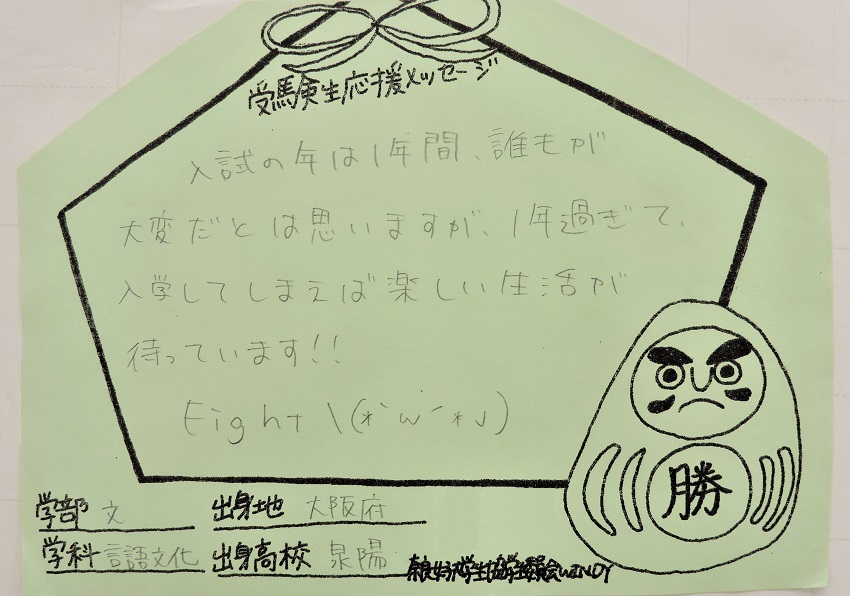 受験生応援メッセージ
入試の年は1年間、誰もが
大変だとは思いますが、1年過ぎて、
入学してしまえば楽しい生活が
待っています!!
Fight \(*`ω´*\)
勝
学部 文 出身地 大阪府
学科 言語文化 出身高校 泉陽
奈良女子大学生協学生委員会WINDY